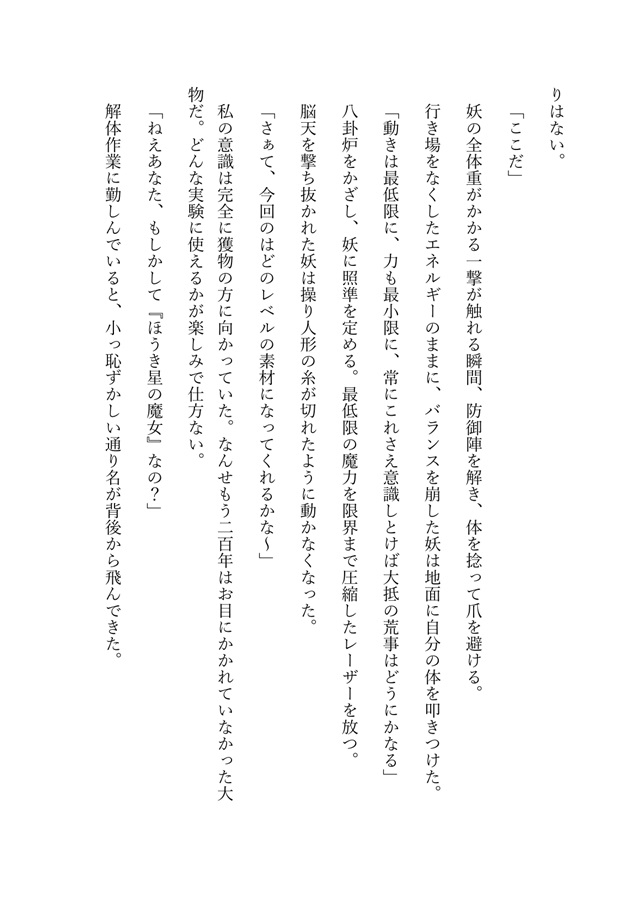 りはない。
「ここだ」
妖の全体重がかかる一撃が触れる瞬間、防御陣を解き、体を捻って爪を避ける。
行き場をなくしたエネルギーのままに、バランスを崩した妖は地面に自分の体を叩きつけた。
「動きは最低限に、力も最小限に、常にこれさえ意識しとけば大抵の荒事はどうにかなる」
八卦炉をかざし、妖に照準を定める。最低限の魔力を限界まで圧縮したレーザーを放つ。
脳天を撃ち抜かれた妖は操り人形の糸が切れたように動かなくなった。
「さぁて、今回のはどのレベルの素材になってくれるかな〜」
私の意識は完全に獲物の方に向かっていた。なんせもう二百年はお目にかかれていなかった大
物だ。どんな実験に使えるかが楽しみで仕方ない。
「ねえあなた、もしかして『ほうき星の魔女』なの？」
解体作業に勤しんでいると、小っ恥ずかしい通り名が背後から飛んできた。